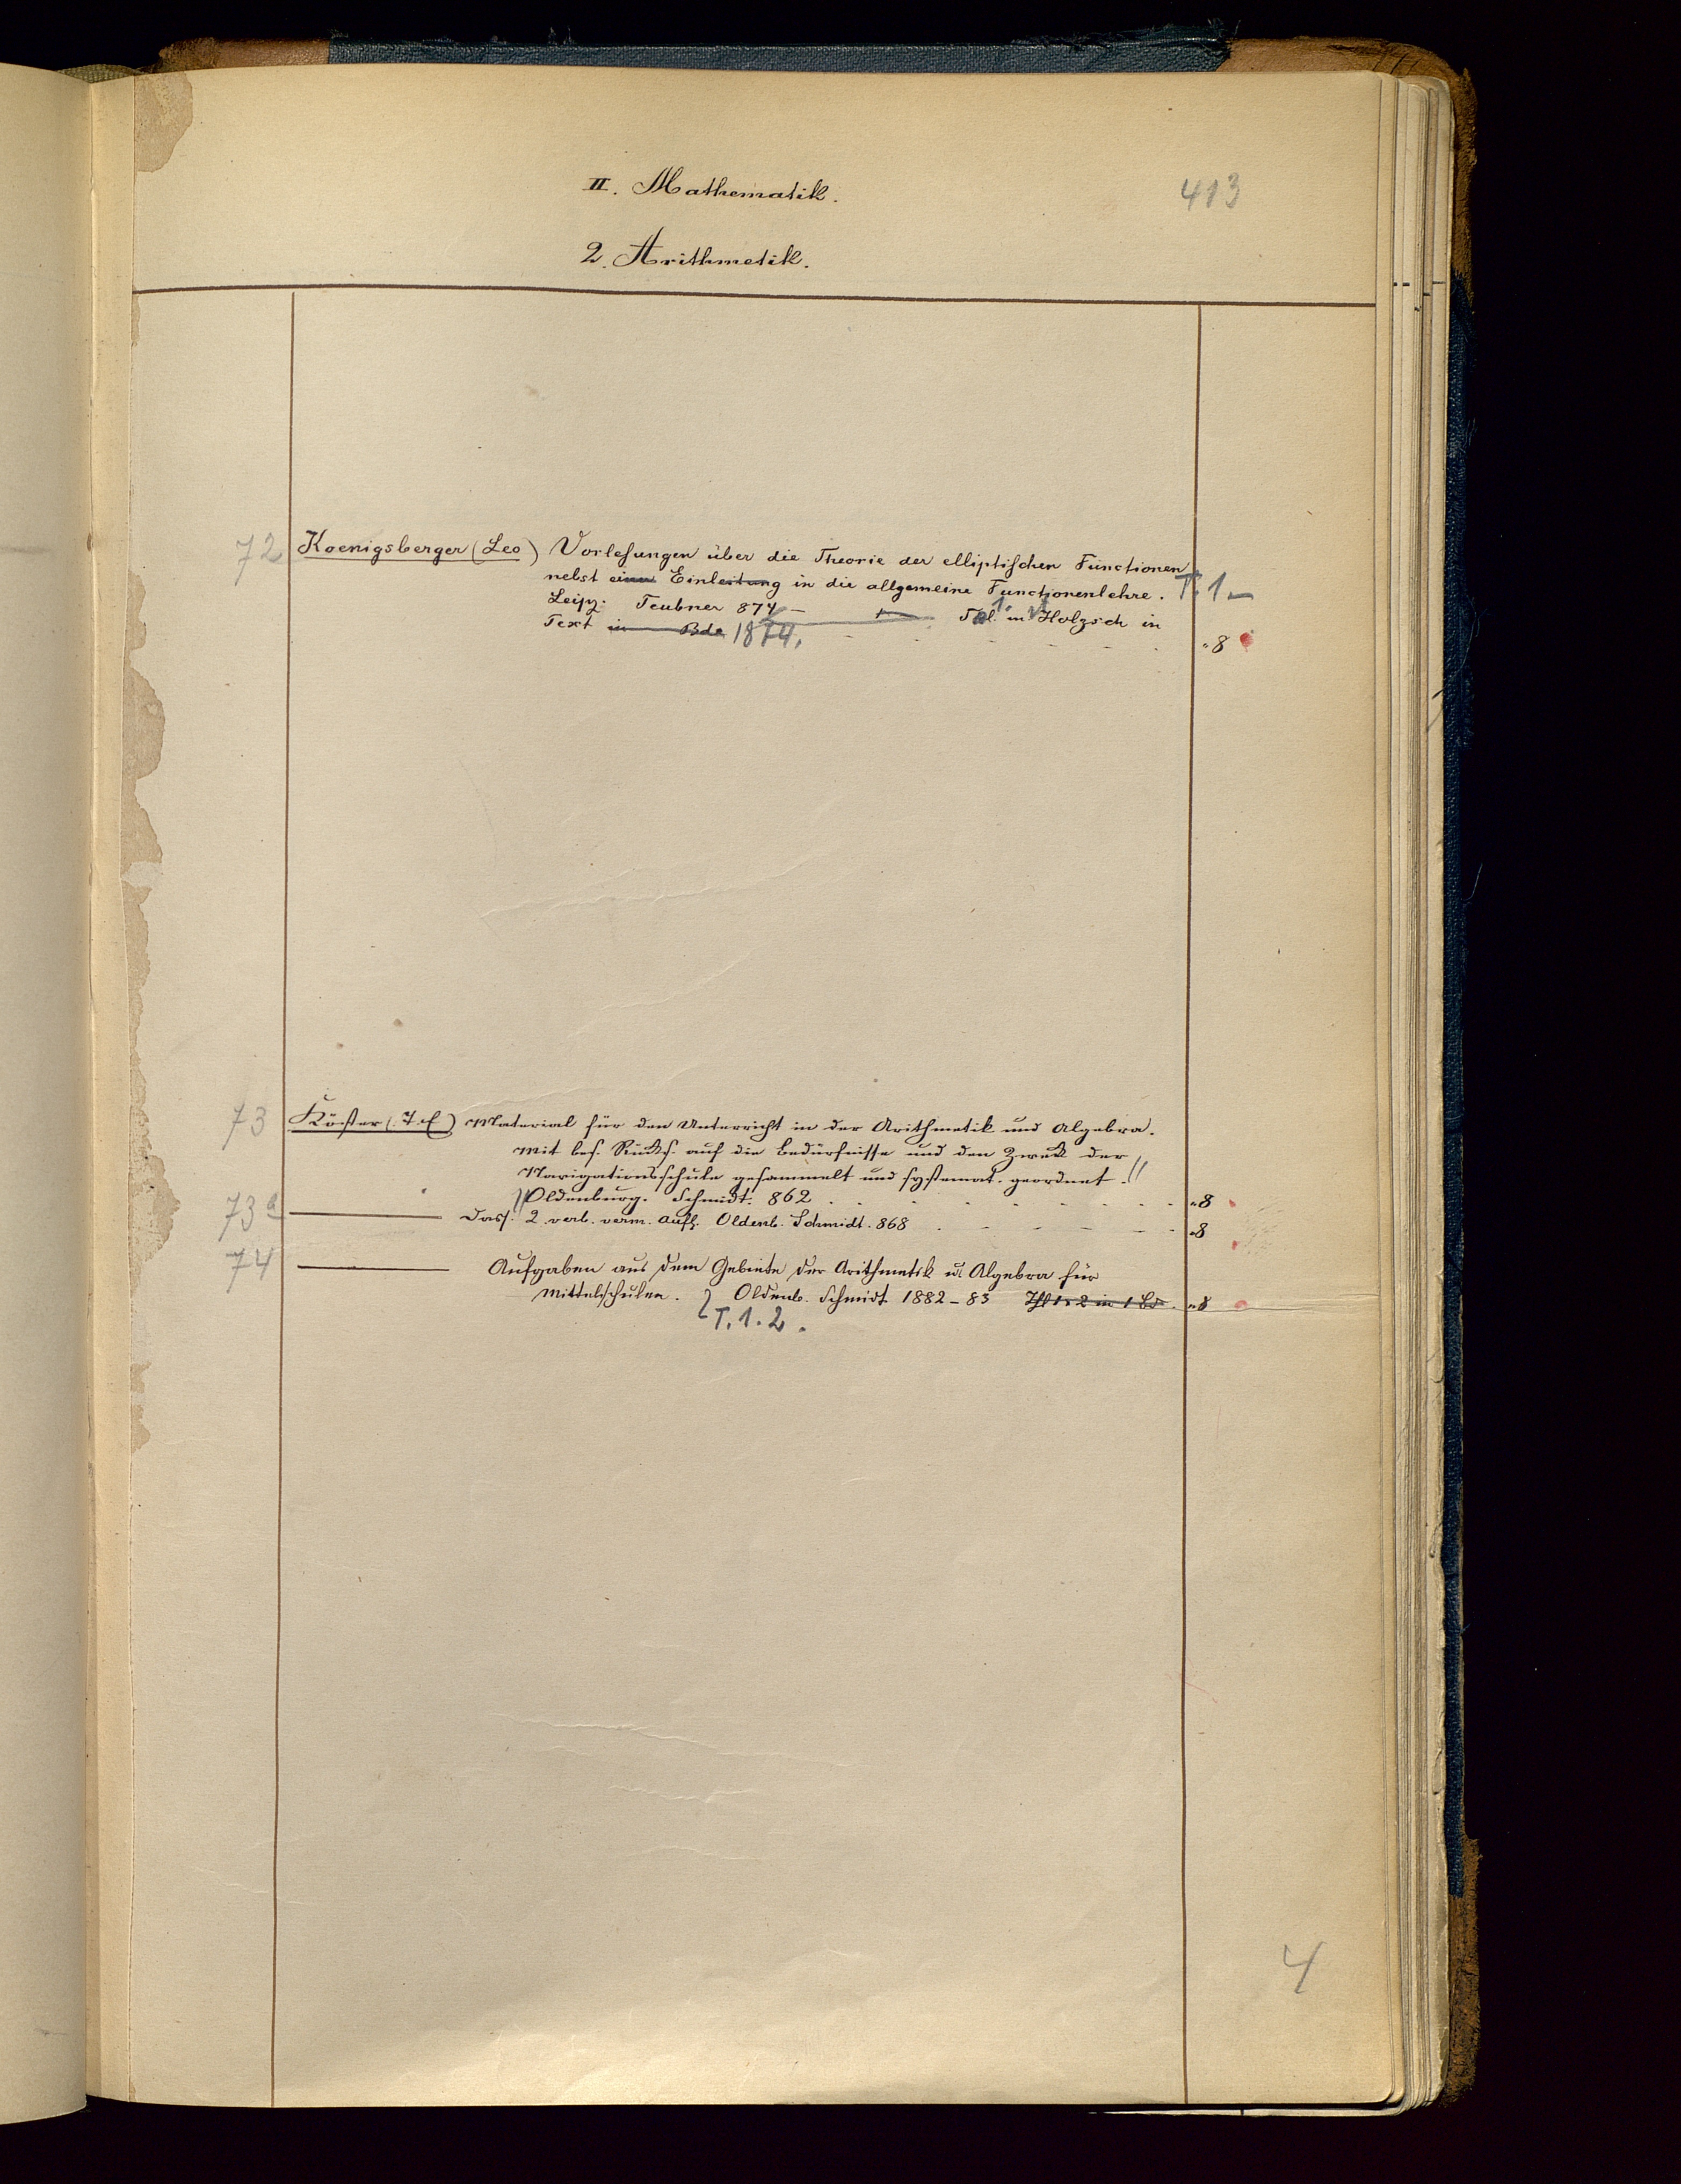 II. Mathematik.
413
2. Arithmetik.
72 Koenigsberger (Leo) Vorlesungen über die Theorie der elliptischen Functionen
nebst einer Einleitung in die allgemeine Functionenlehre. T. 1 –
Leipz. Teubner 874 – 1. m Holzsch in
Text in Bde 1874. "8
73 Köster (F. E) Material für den Unterricht in der Arithmetik und Algebra.
Mit bes. Rücks. auf die Bedürfnisse und den Zweck der
Navigationsschule gesammelt und systemat. geordnet. //
// Oldenburg. Schmidt. 862 "8
73a Dass. 2. verb. verm. Aufl. Oldenb. Schmidt. 868 "8
74 Aufgaben aus dem Gebiete der Arithmetik u Algebra für
Mittelschulen. Oldenb. Schmidt 1882–83 Thl 1 & 2 in 1 Bd. "8
T. 1. 2.
4